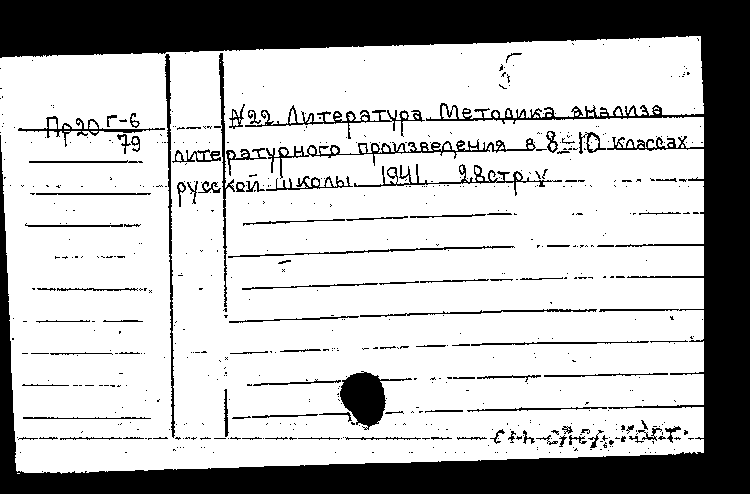 5
Пр20 Г-6
79
№22. Литература. Методика анализа
литературного произведения в 8-10 классах
русской школы. 1941. 28стр. v
см. след. карт.